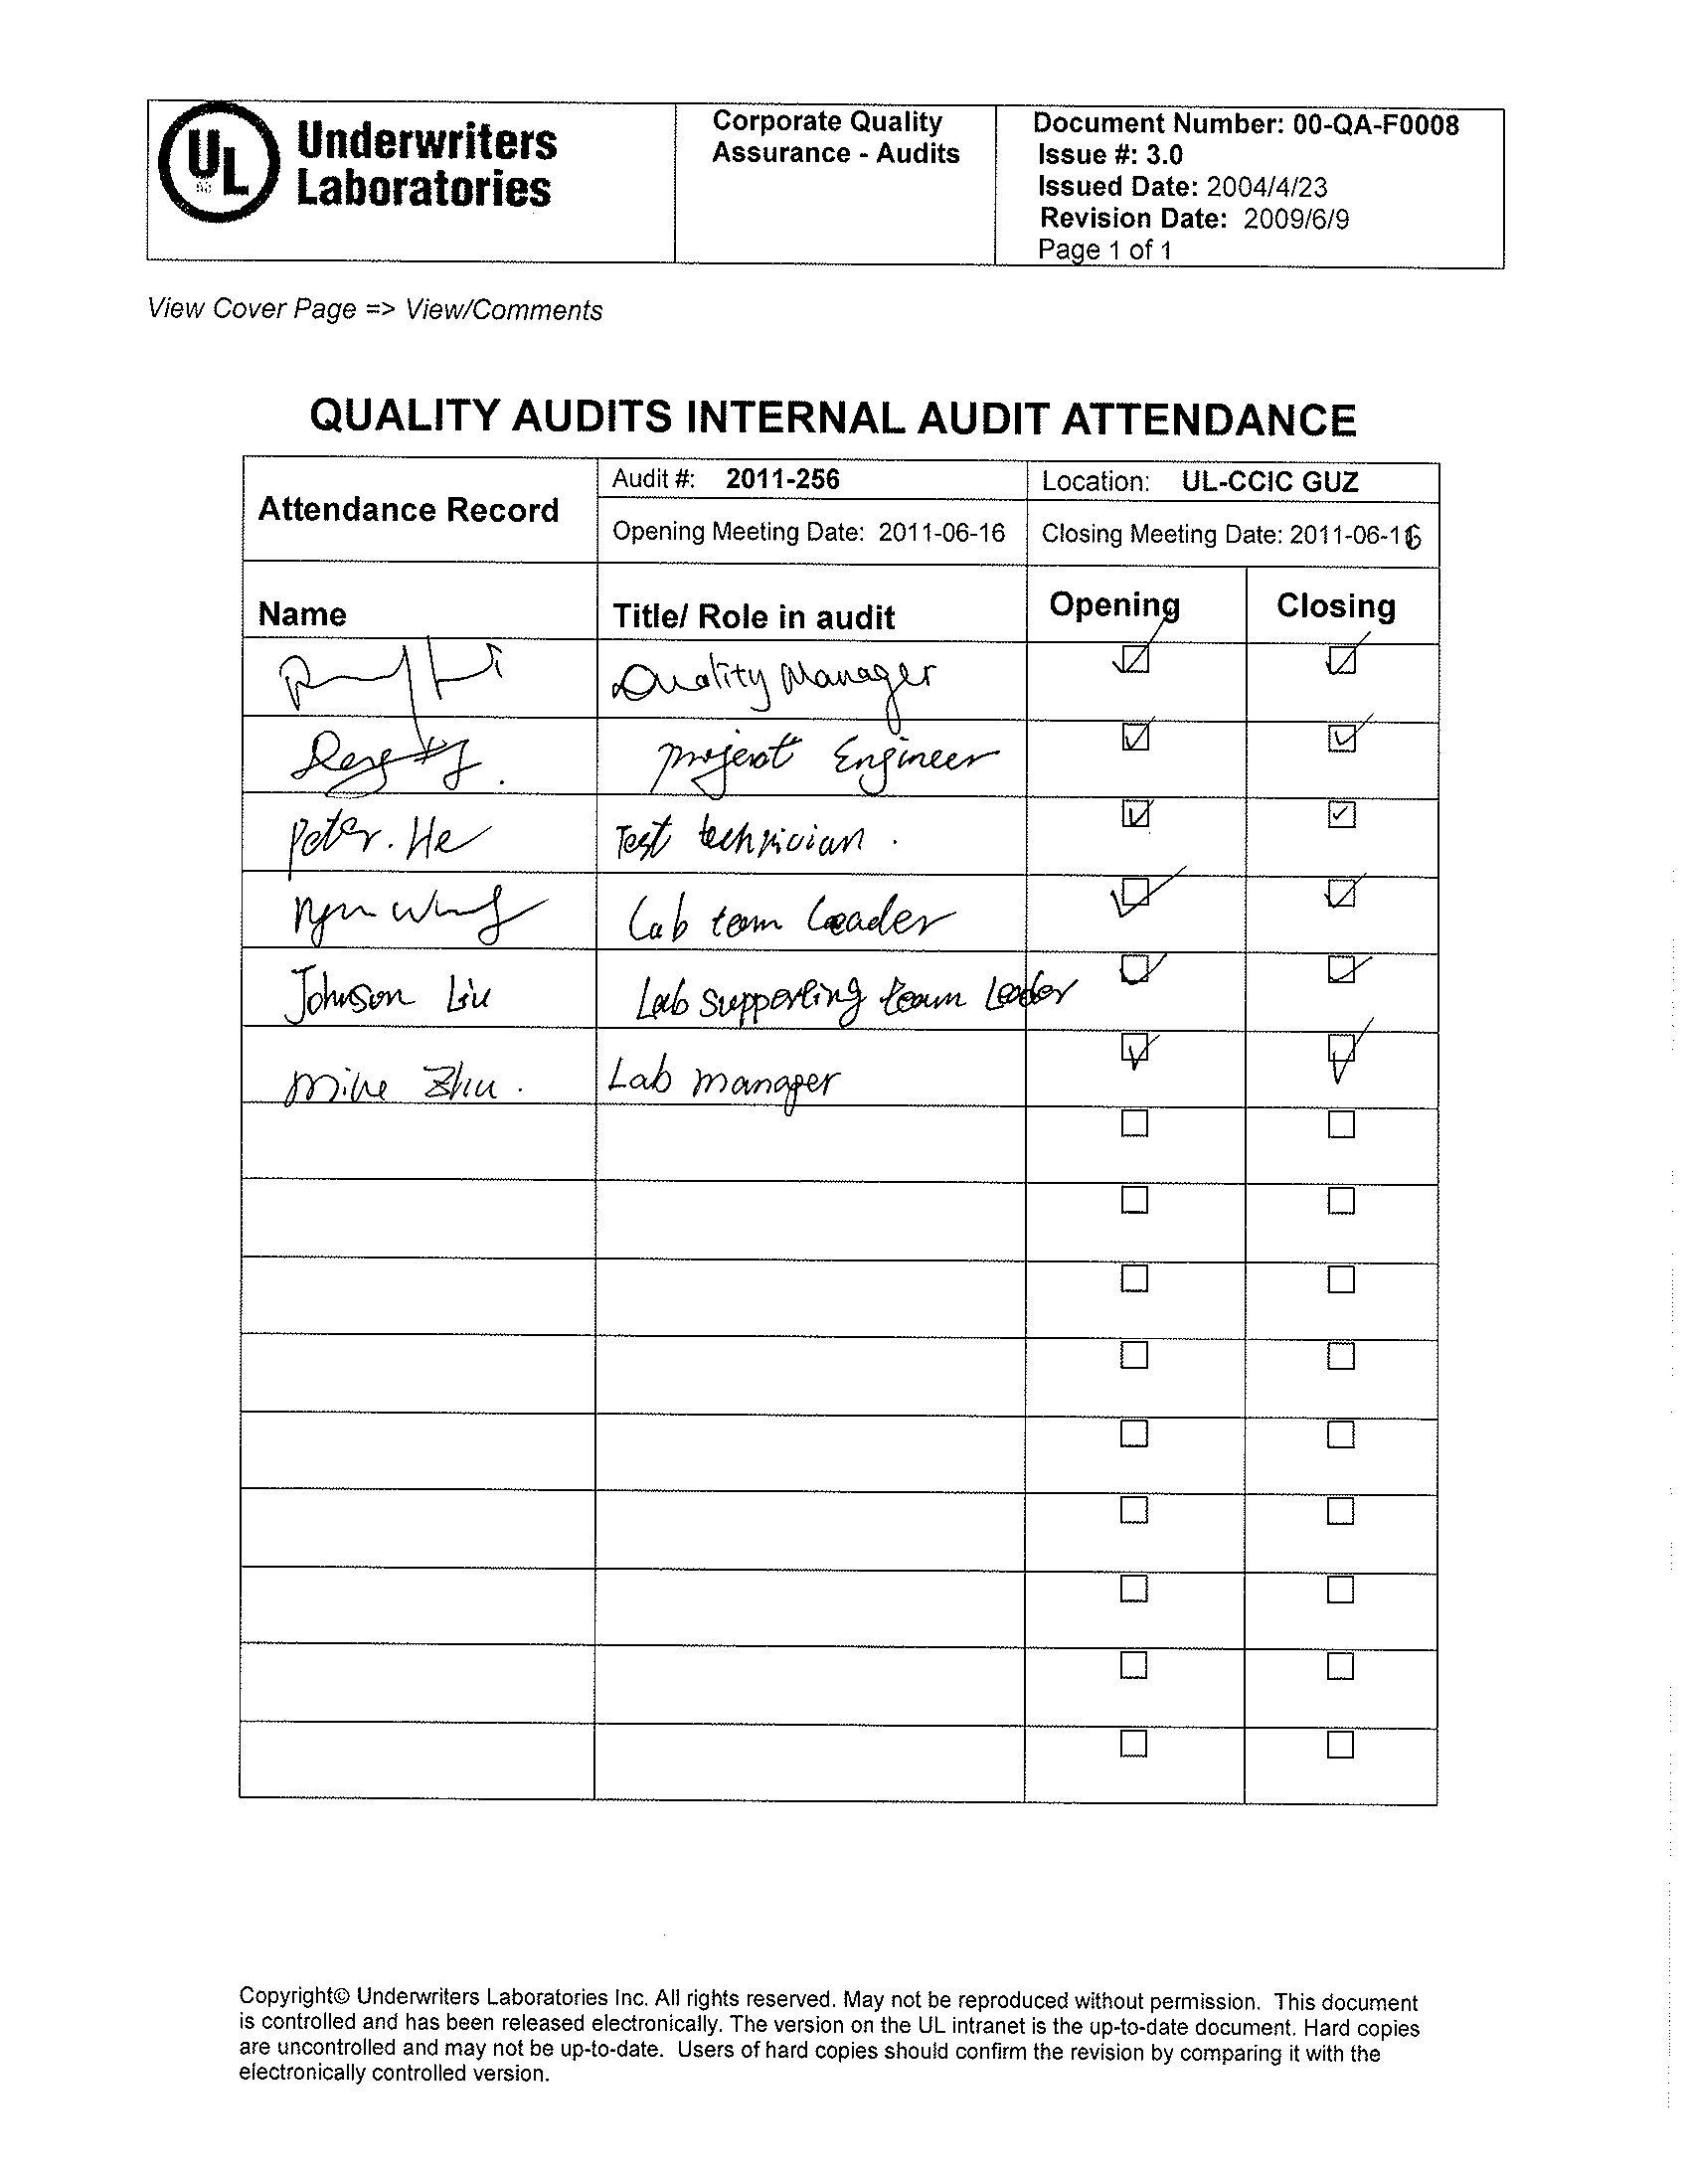 UL Underwriters Laboratories
Corporate Quality Assurance - Audits
Document Number: 00-QA-F0008
Issue #: 3.0
Issued Date: 2004/4/23
Revision Date: 2009/6/9
Page 1 of 1
View Cover Page => View/Comments
QUALITY AUDITS INTERNAL AUDIT ATTENDANCE
Attendance Record
Audit #: 2011-256
Location: UL-CCIC GUZ
Opening Meeting Date: 2011-06-16
Closing Meeting Date: 2011-06-16
Name Title/ Role in audit Opening Closing
Quality Manager
project Engineer
Peter. He Test technician .
Lab team Leader
Johnson Liu Lab supporting team Leader
Mike Zhu . Lab manager
Copyright© Underwriters Laboratories Inc. All rights reserved. May not be reproduced without permission. This document
is controlled and has been released electronically. The version on the UL intranet is the up-to-date document. Hard copies
are uncontrolled and may not be up-to-date. Users of hard copies should confirm the revision by comparing it with the
electronically controlled version.